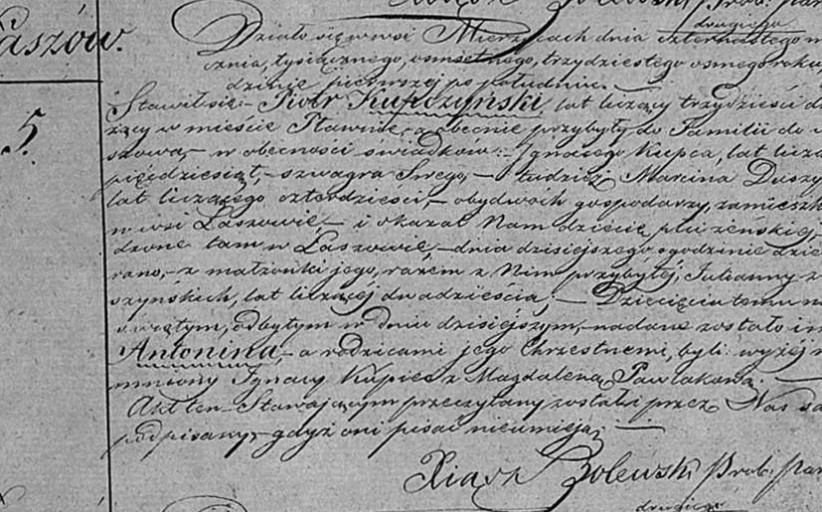 Bolewski Prob: par
drugiego
Łaszów.
Działo się w wsi Mierzycach dnia czternastego
cznia, tysiącznego, osmsetnego, trzydziestego osmego roku,
dzinie pierwszej po południu.
5.
Stawił się Piotr Kupczyński lat liczący trzydzieści
żący w mieście Pławnie, a obecnie przybyły do Familii do
szowa, w obecności świadków: Ignacego Kupca, lat licz
pięćdziesiąt, szwagra Swego, tudzież Marcina Duszy
lat liczącego czterdzieści, obydwóch gospodarzy, zamieszk
w wsi Łaszowie, i okazał Nam dziecię płci żeńskiej,
dzone tam w Łaszowie, dnia dzisiejszego o godzinie dzie
rano, z małżonki jego, razem z Nim przybyłej, Julianny z
szyńskich, lat liczącej dwadzieścia; Dziecięciu temu na
świętym, odbytym w dniu dzisiejszym, nadane zostało im
Antonina, a rodzicami jego Chrzestnemi, byli wyżej
mniony Ignacy Kupiec z Magdaleną Pawlakową.
Akt ten Stawającym przeczytany został i przez Nas
podpisany, gdyż oni pisać nieumieją.
Xiądz Bolewski Prob: par
drugiego